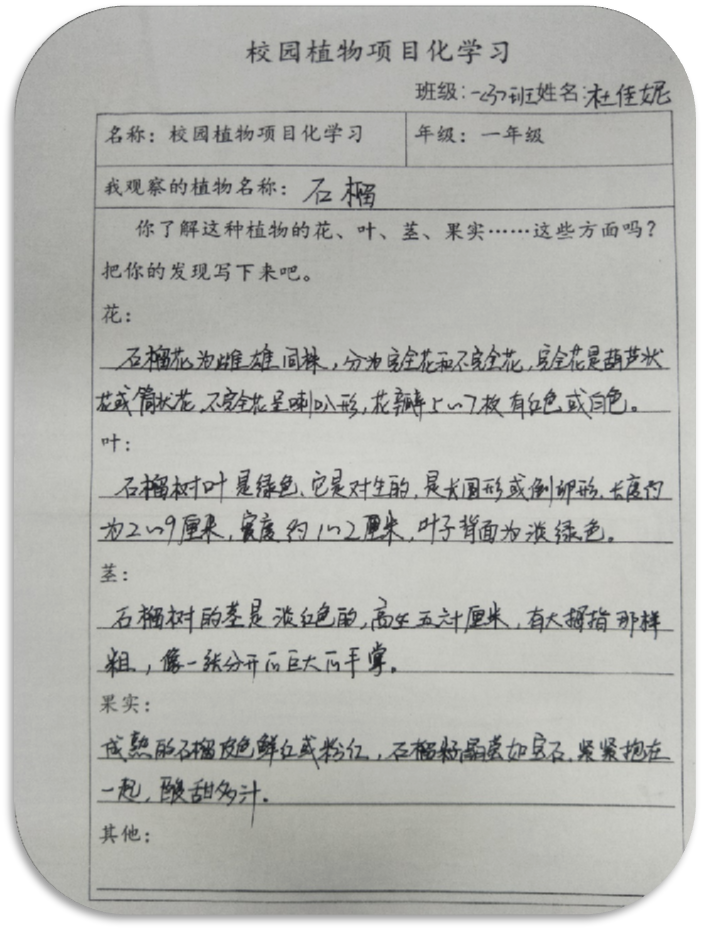 校园植物项目化学习
班级:一(3)班姓名:杜佳妮
名称：校园植物项目化学习 年级：一年级
我观察的植物名称：石榴
你了解这种植物的花、叶、茎、果实……这些方面吗？
把你的发现写下来吧。
花：
石榴花为雌雄同株，分为完全花和不完全花，完全花是葫芦状
花或筒状花，不完全花呈喇叭形，花瓣5~7枚有红色或白色。
叶：
石榴树叶是绿色、它是对生的，是长圆形或倒卵形，长度约
为2~9厘米，宽度约1~2厘米，叶子背面为淡绿色。
茎：
石榴树的茎是淡红色的，高 五六十厘米，有大拇指那样
粗，像一张分开的巨大的手掌。
果实：
成熟的石榴皮色鲜红或粉红，石榴籽晶莹如宝石，紧紧抱在
一起，酸甜多汁。
其他：